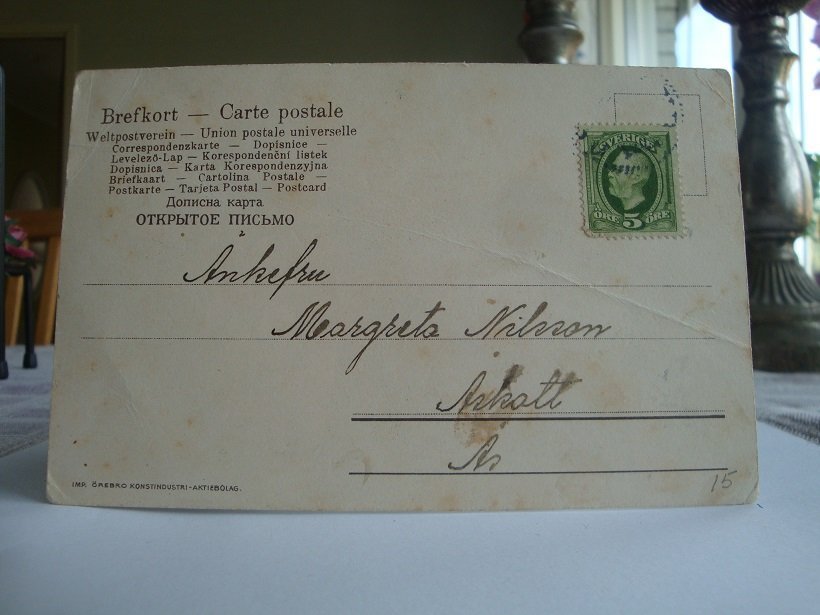 Brefkort — Carte postale
Weltpostverein — Union postale universelle
Correspondenzkarte — Dopisnice —
Levelező-Lap — Korespondenční listek
Dopisnica — Karta Korespondenzyjna
Briefkaart — Cartolina Postale —
Postkarte — Tarjeta Postal — Postcard
Дописна карта
ОТКРЫТОЕ ПИСЬМО
SVERIGE
ÖRE 5 ÖRE
Änkefru
Margreta Nilsson
Askott
As
IMP. ÖREBRO KONSTINDUSTRI-AKTIEBOLAG.
15